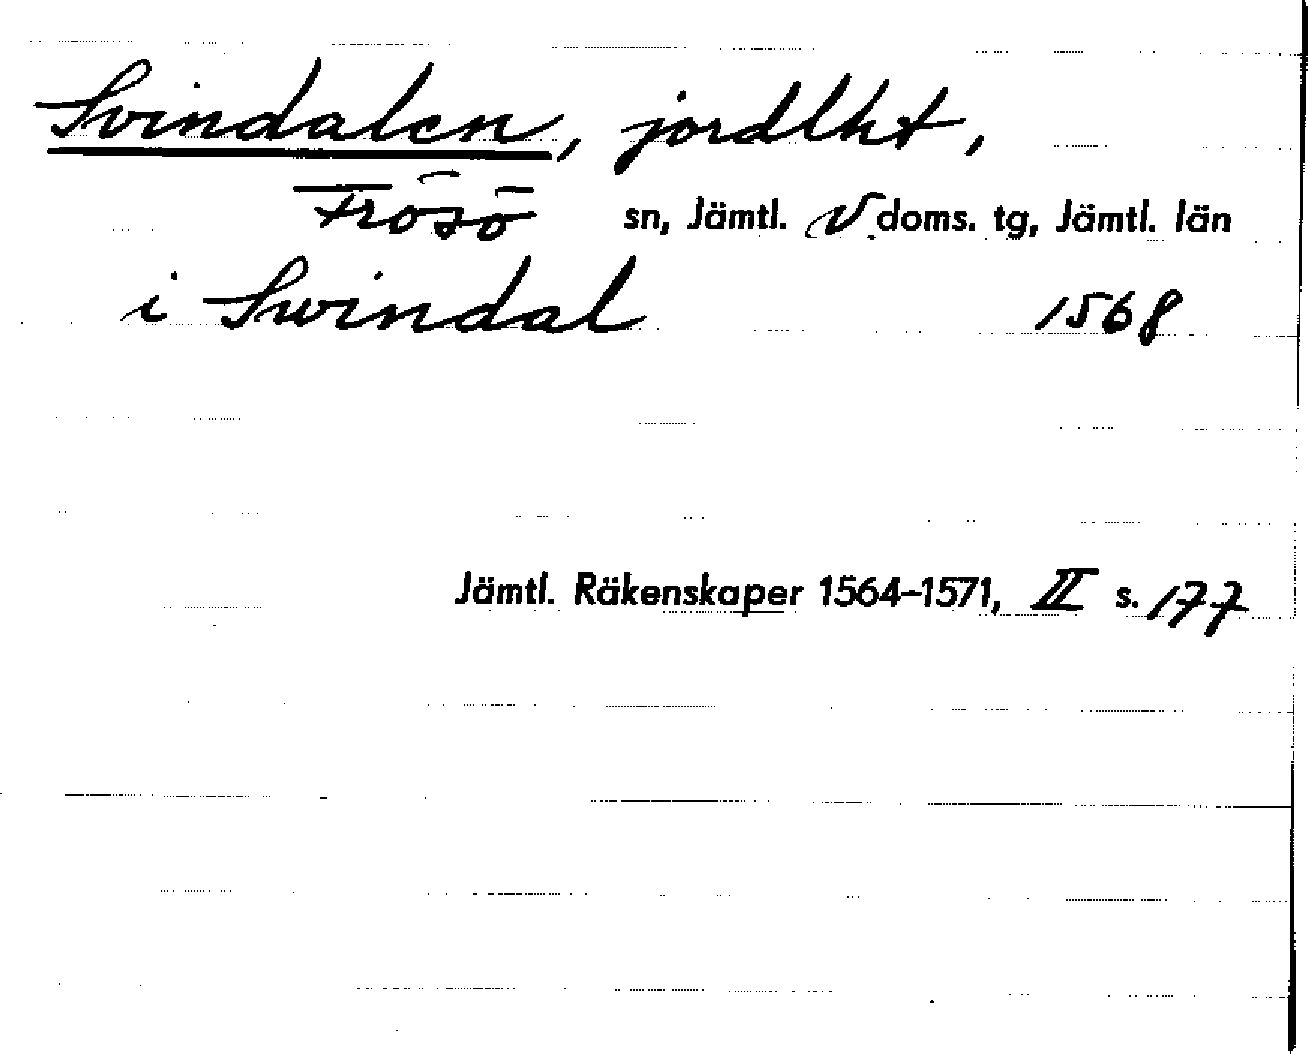 Svindalen, jordlht,
Frösö sn, Jämtl. V doms. tg, Jämtl. län
i Swindal 1568
Jämtl. Räkenskaper 1564-1571, II s. 177